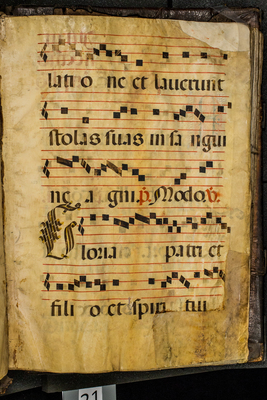 lati o ne et lauerunt
stolas suas in sa ngui
ne a gni. p. Modo. v.
Gloria patri et
fili o et spiri tui
21